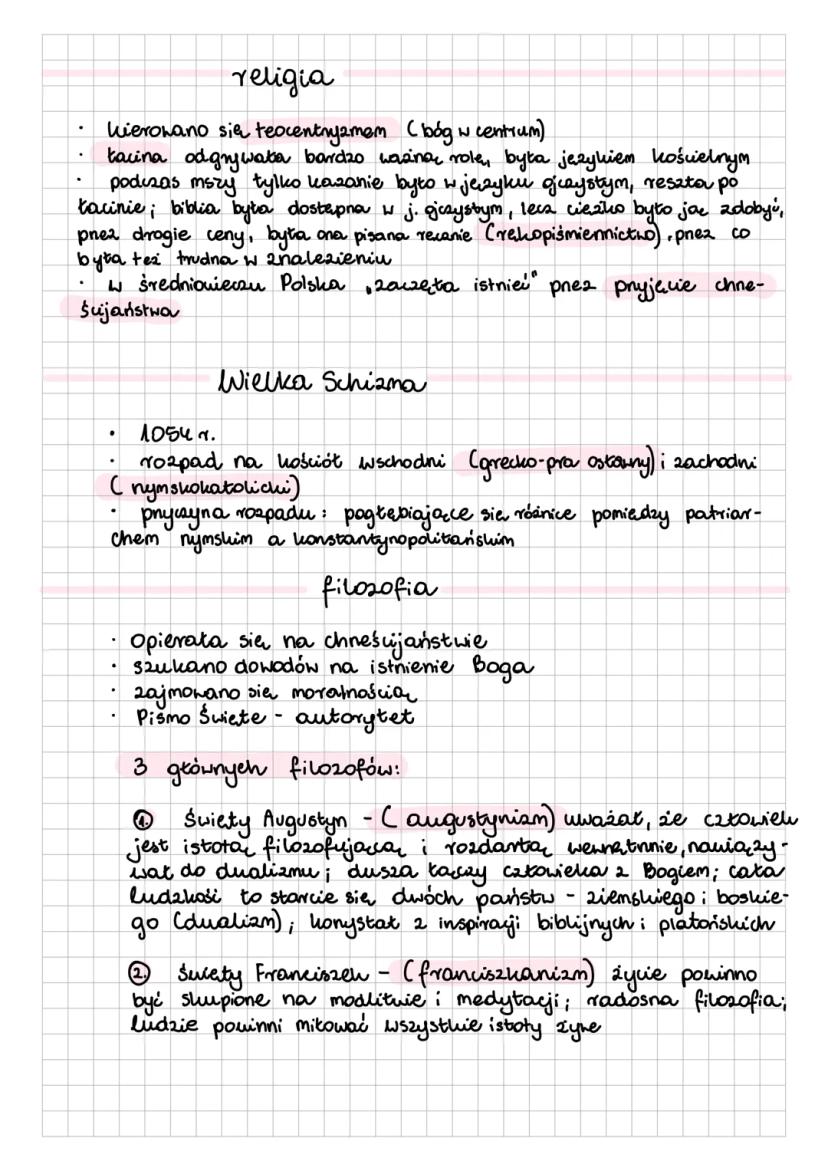 religia
· kierowano się teocentryzmem (bóg w centrum)
· łacina odgrywała bardzo ważną rolę, była językiem kościelnym
· podczas mszy tylko kazanie było w języku ojczystym, reszta po
łacinie; biblia była dostępna w j. ojczystym, lecz ciężko było ją zdobyć,
przez drogie ceny, była ona pisana ręcznie (rękopiśmiennictwo), przez co
była też trudna w znalezieniu
· w średniowieczu Polska „zaczęła istnieć" przez przyjęcie chrze-
ścijaństwa
Wielka Schizma
· 1054 r.
· rozpad na kościół wschodni (grecko-pra osławny) i zachodni
(rzymskokatolicki)
· przyczyna rozpadu: pogłębiające się różnice pomiędzy patriar-
chem rzymskim a konstantynopolitańskim
filozofia
· Opierała się na chrześcijaństwie
· szukano dowodów na istnienie Boga
· zajmowano się moralnością
· Pismo Święte - autorytet
3 głównych filozofów:
1. Święty Augustyn - (augustynizm) uważał, że człowiek
jest istotą filozofującą i rozdartą wewnętrznie, nawiązy-
wał do dualizmu; dusza łączy człowieka z Bogiem; cała
ludzkość to starcie się dwóch państw - ziemskiego i boskie-
go (dualizm); korzystał z inspiracji biblijnych i platońskich
2. Święty Franciszek - (franciszkanizm) życie powinno
być skupione na modlitwie i medytacji; radosna filozofia;
ludzie powinni miłować wszystkie istoty żywe